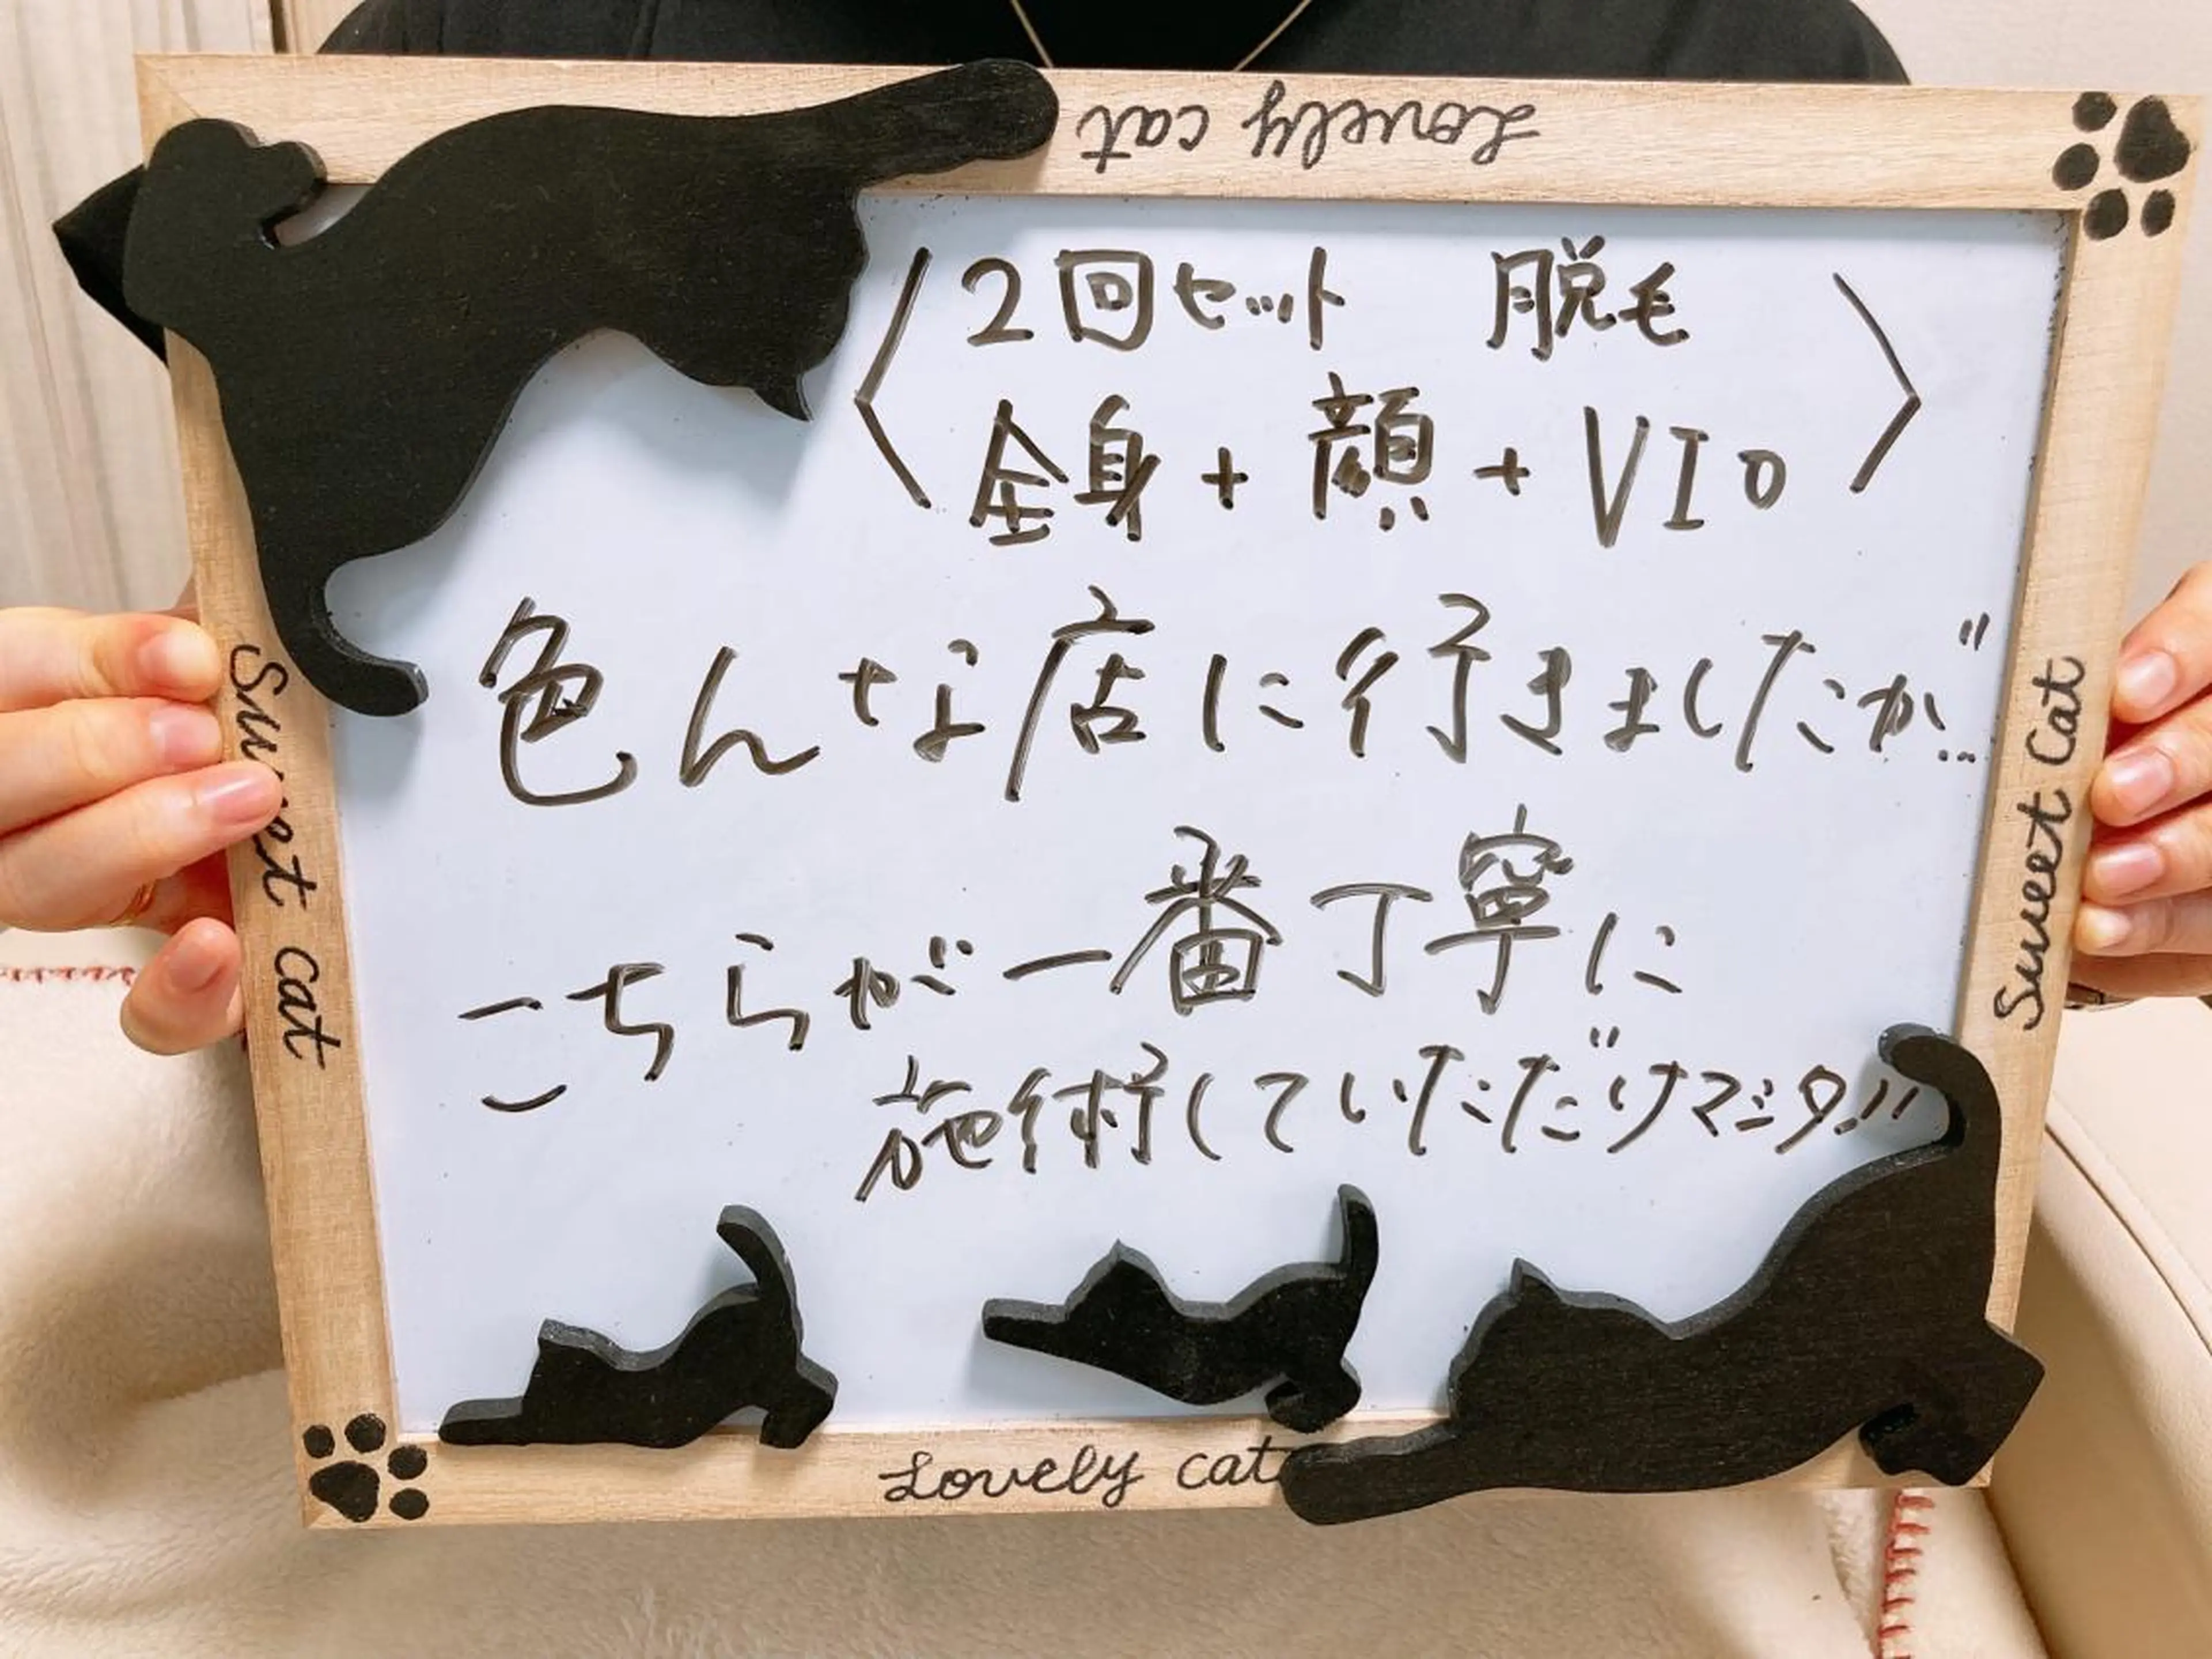 Lovely cat
〈2回セット 脱毛
全身+顔+VIO〉
色んな店に行きましたが…
こちらが一番丁寧に
施術していただけマシタ!!
Sweet cat
Sweet Cat
Lovely cat